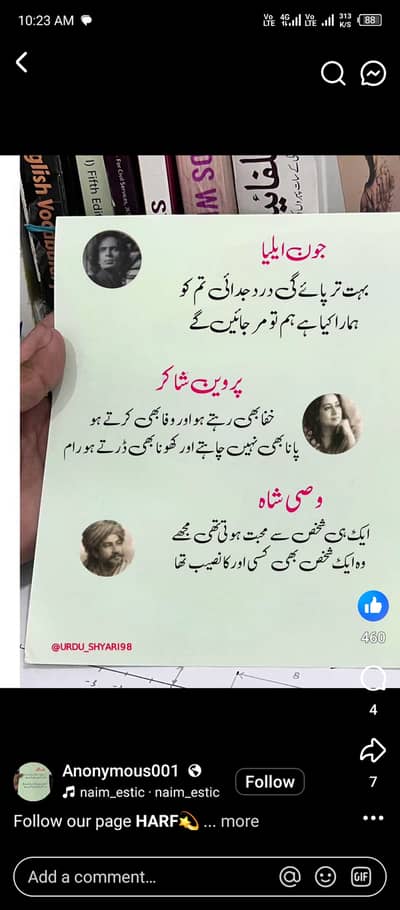 10:23 AM
Vo LTE 4G Vo LTE 313 K/S 88
glish Voc
I) Fifth Edi
For Civil Services
OS W
جون ایلیا
بہت تڑپائے گی درد جدائی تم کو
ہمارا کیا ہے ہم تو مر جائیں گے
پروین شاکر
خفا بھی رہتے ہو اور وفا بھی کرتے ہو
پانا بھی نہیں چاہتے اور کھونا بھی ڈرتے ہو رام
وصی شاہ
ایک ہی شخص سے محبت ہوتی تھی مجھے
وہ ایک شخص بھی کسی اور کا نصیب تھا
@URDU_SHYARI98
460
4
7
Anonymous001
naim_estic · naim_estic
Follow
Follow our page HARF💫 ... more
Add a comment...
GIF